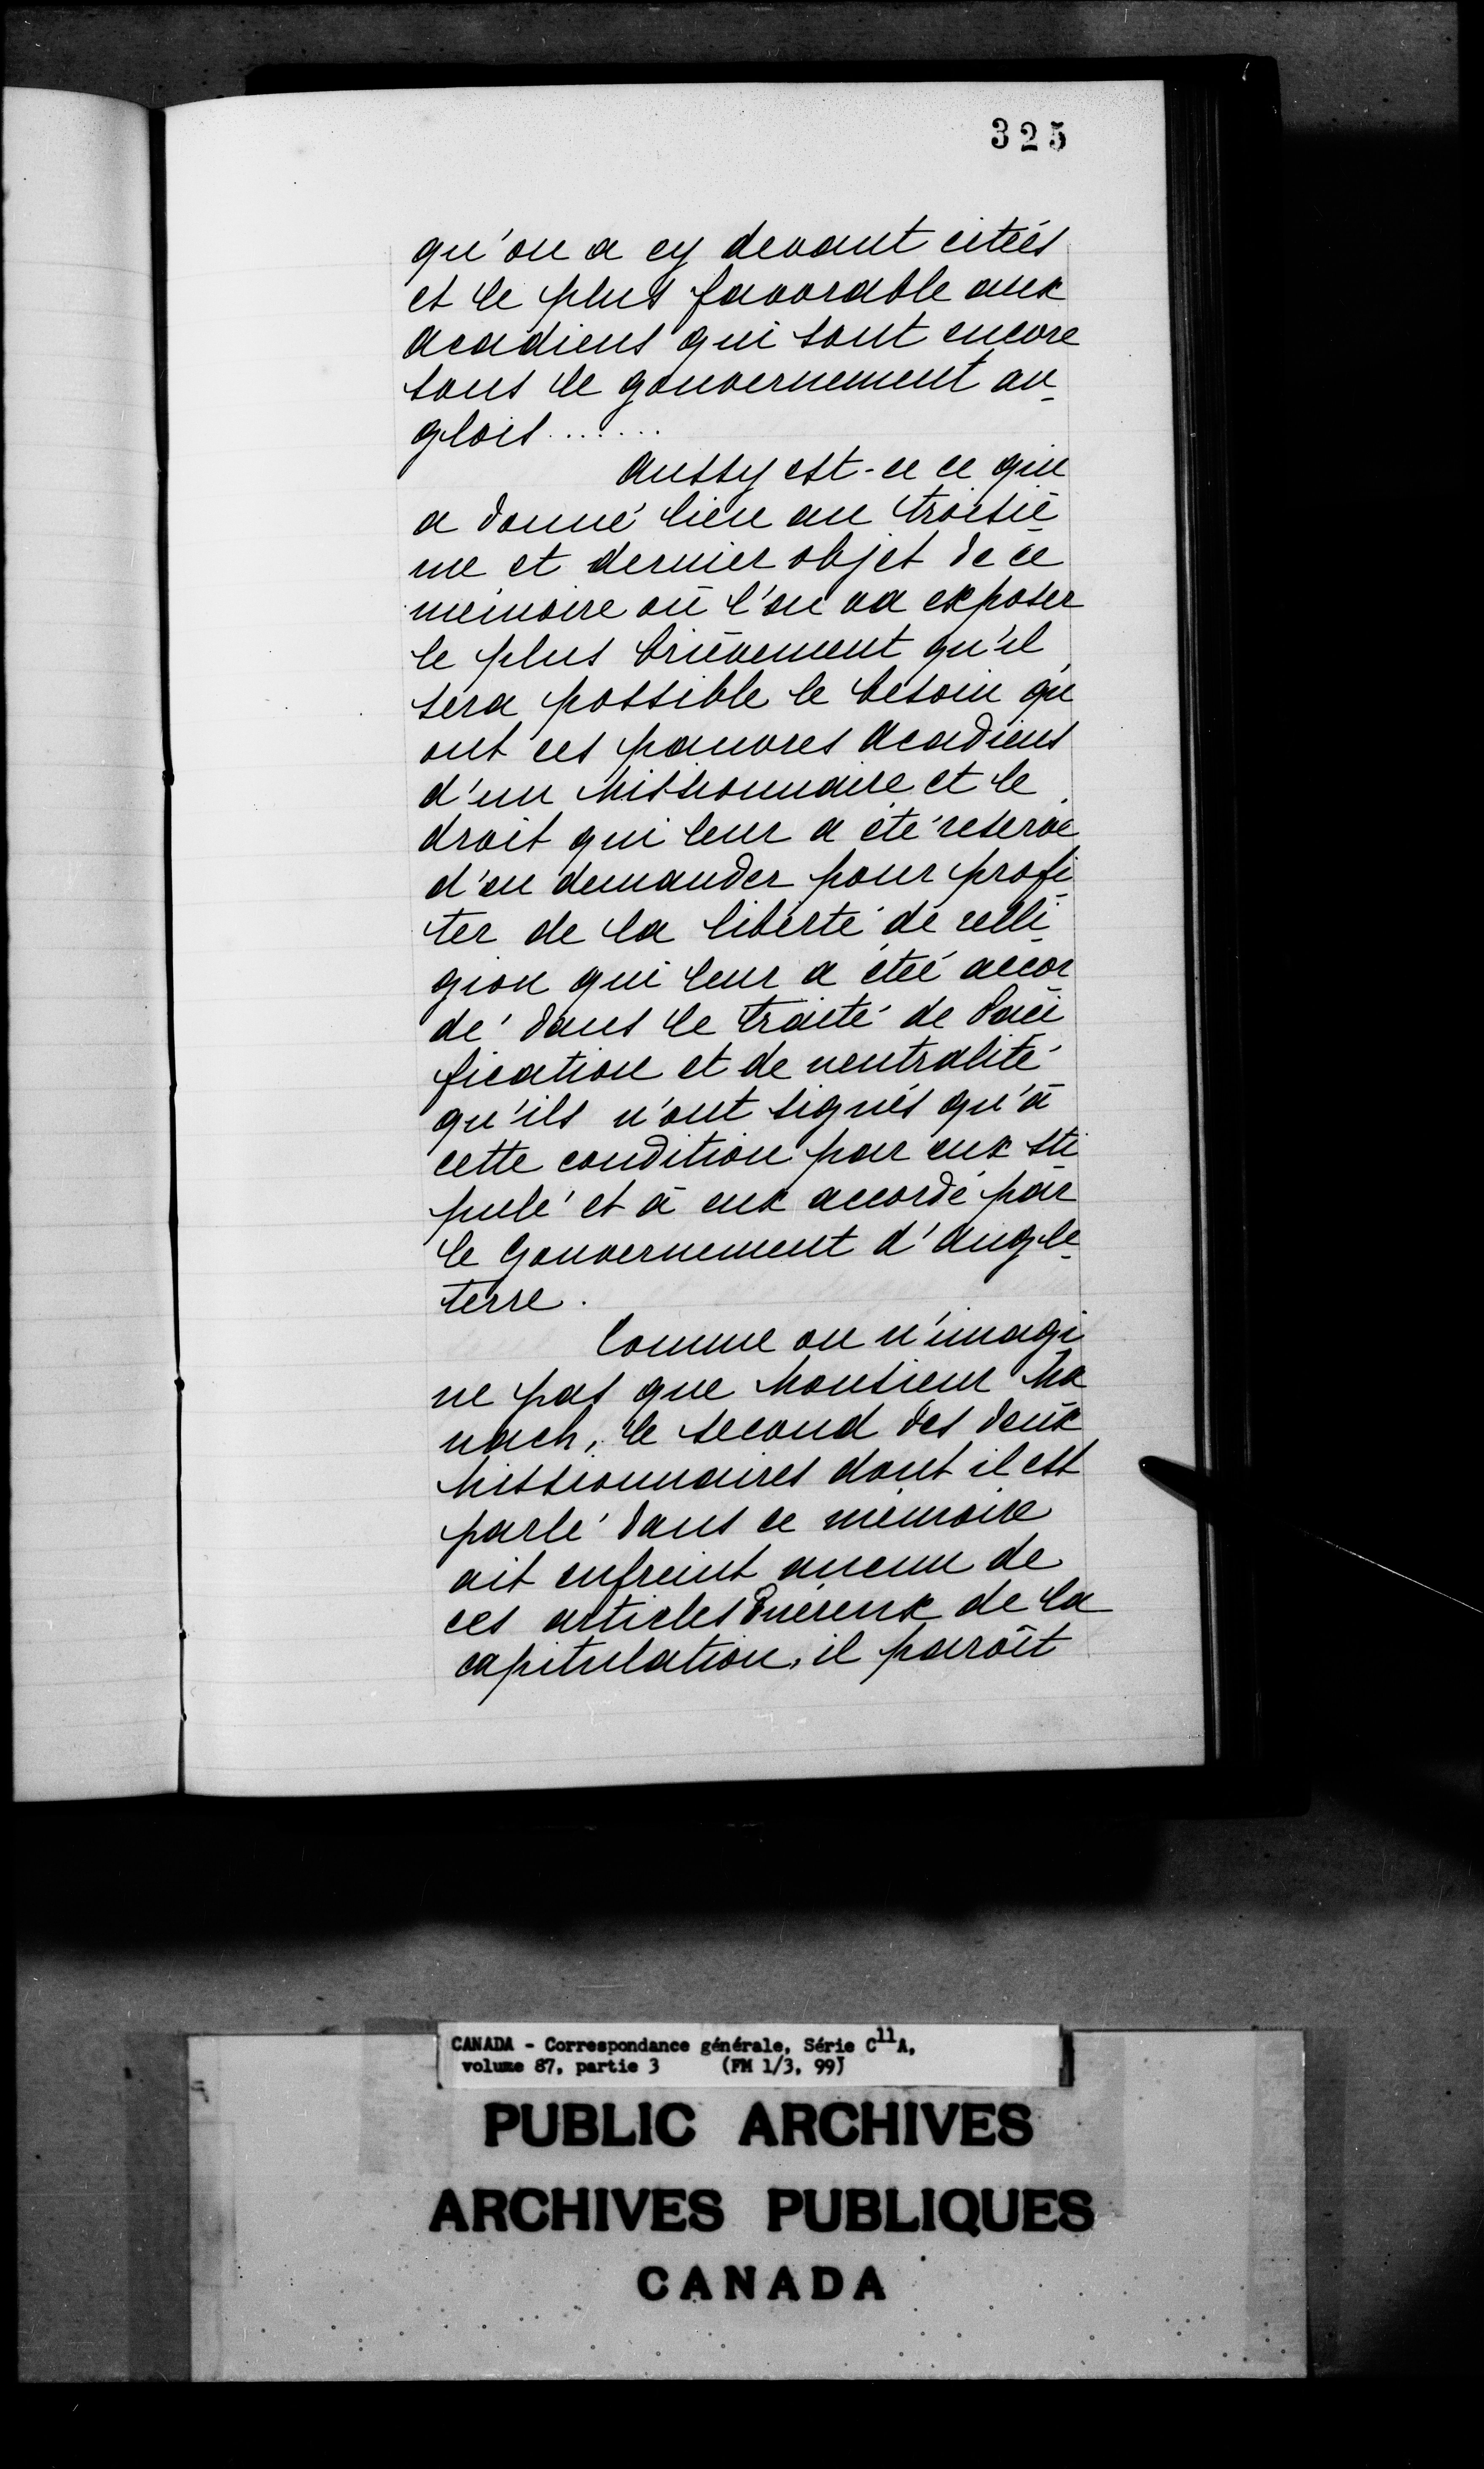 325
qu'on a cy devant citéés
et le plus favorable aux
acadiens qui sont encore
sous le gouvernement an-
glois.......
Aussy est-ce ce qui
a donné lieu au troisiè-
me et dernier objet de ce
mémoire où l'on va exposer
le plus brièvement qu'il
sera possible le besoin qu'
ont ces pauvres acadiens
d'un Missionnaire et le
droit qui leur a été reservé
d'en demander pour profi-
ter de la liberté de relli-
gion qui leur a étéé accor-
dé dans le traité de Paci-
fication et de neutralité
qu'ils n'ont signés qu'à
cette condition par eux sti-
pulé et à eux accordé par
le Gouvernement d'Angle-
terre.
Comme on n'imagi-
ne pas que Monsieur Ma-
nach, le second des deux
Missionnaires dont il est
parlé dans ce mémoire
ait enfreint aucun de
ces articles Onéreux de la
capitulation, il paroît
CANADA - Correspondance générale, Série C11A,
volume 87, partie 3 (FM 1/3, 99)
PUBLIC ARCHIVES
ARCHIVES PUBLIQUES
CANADA